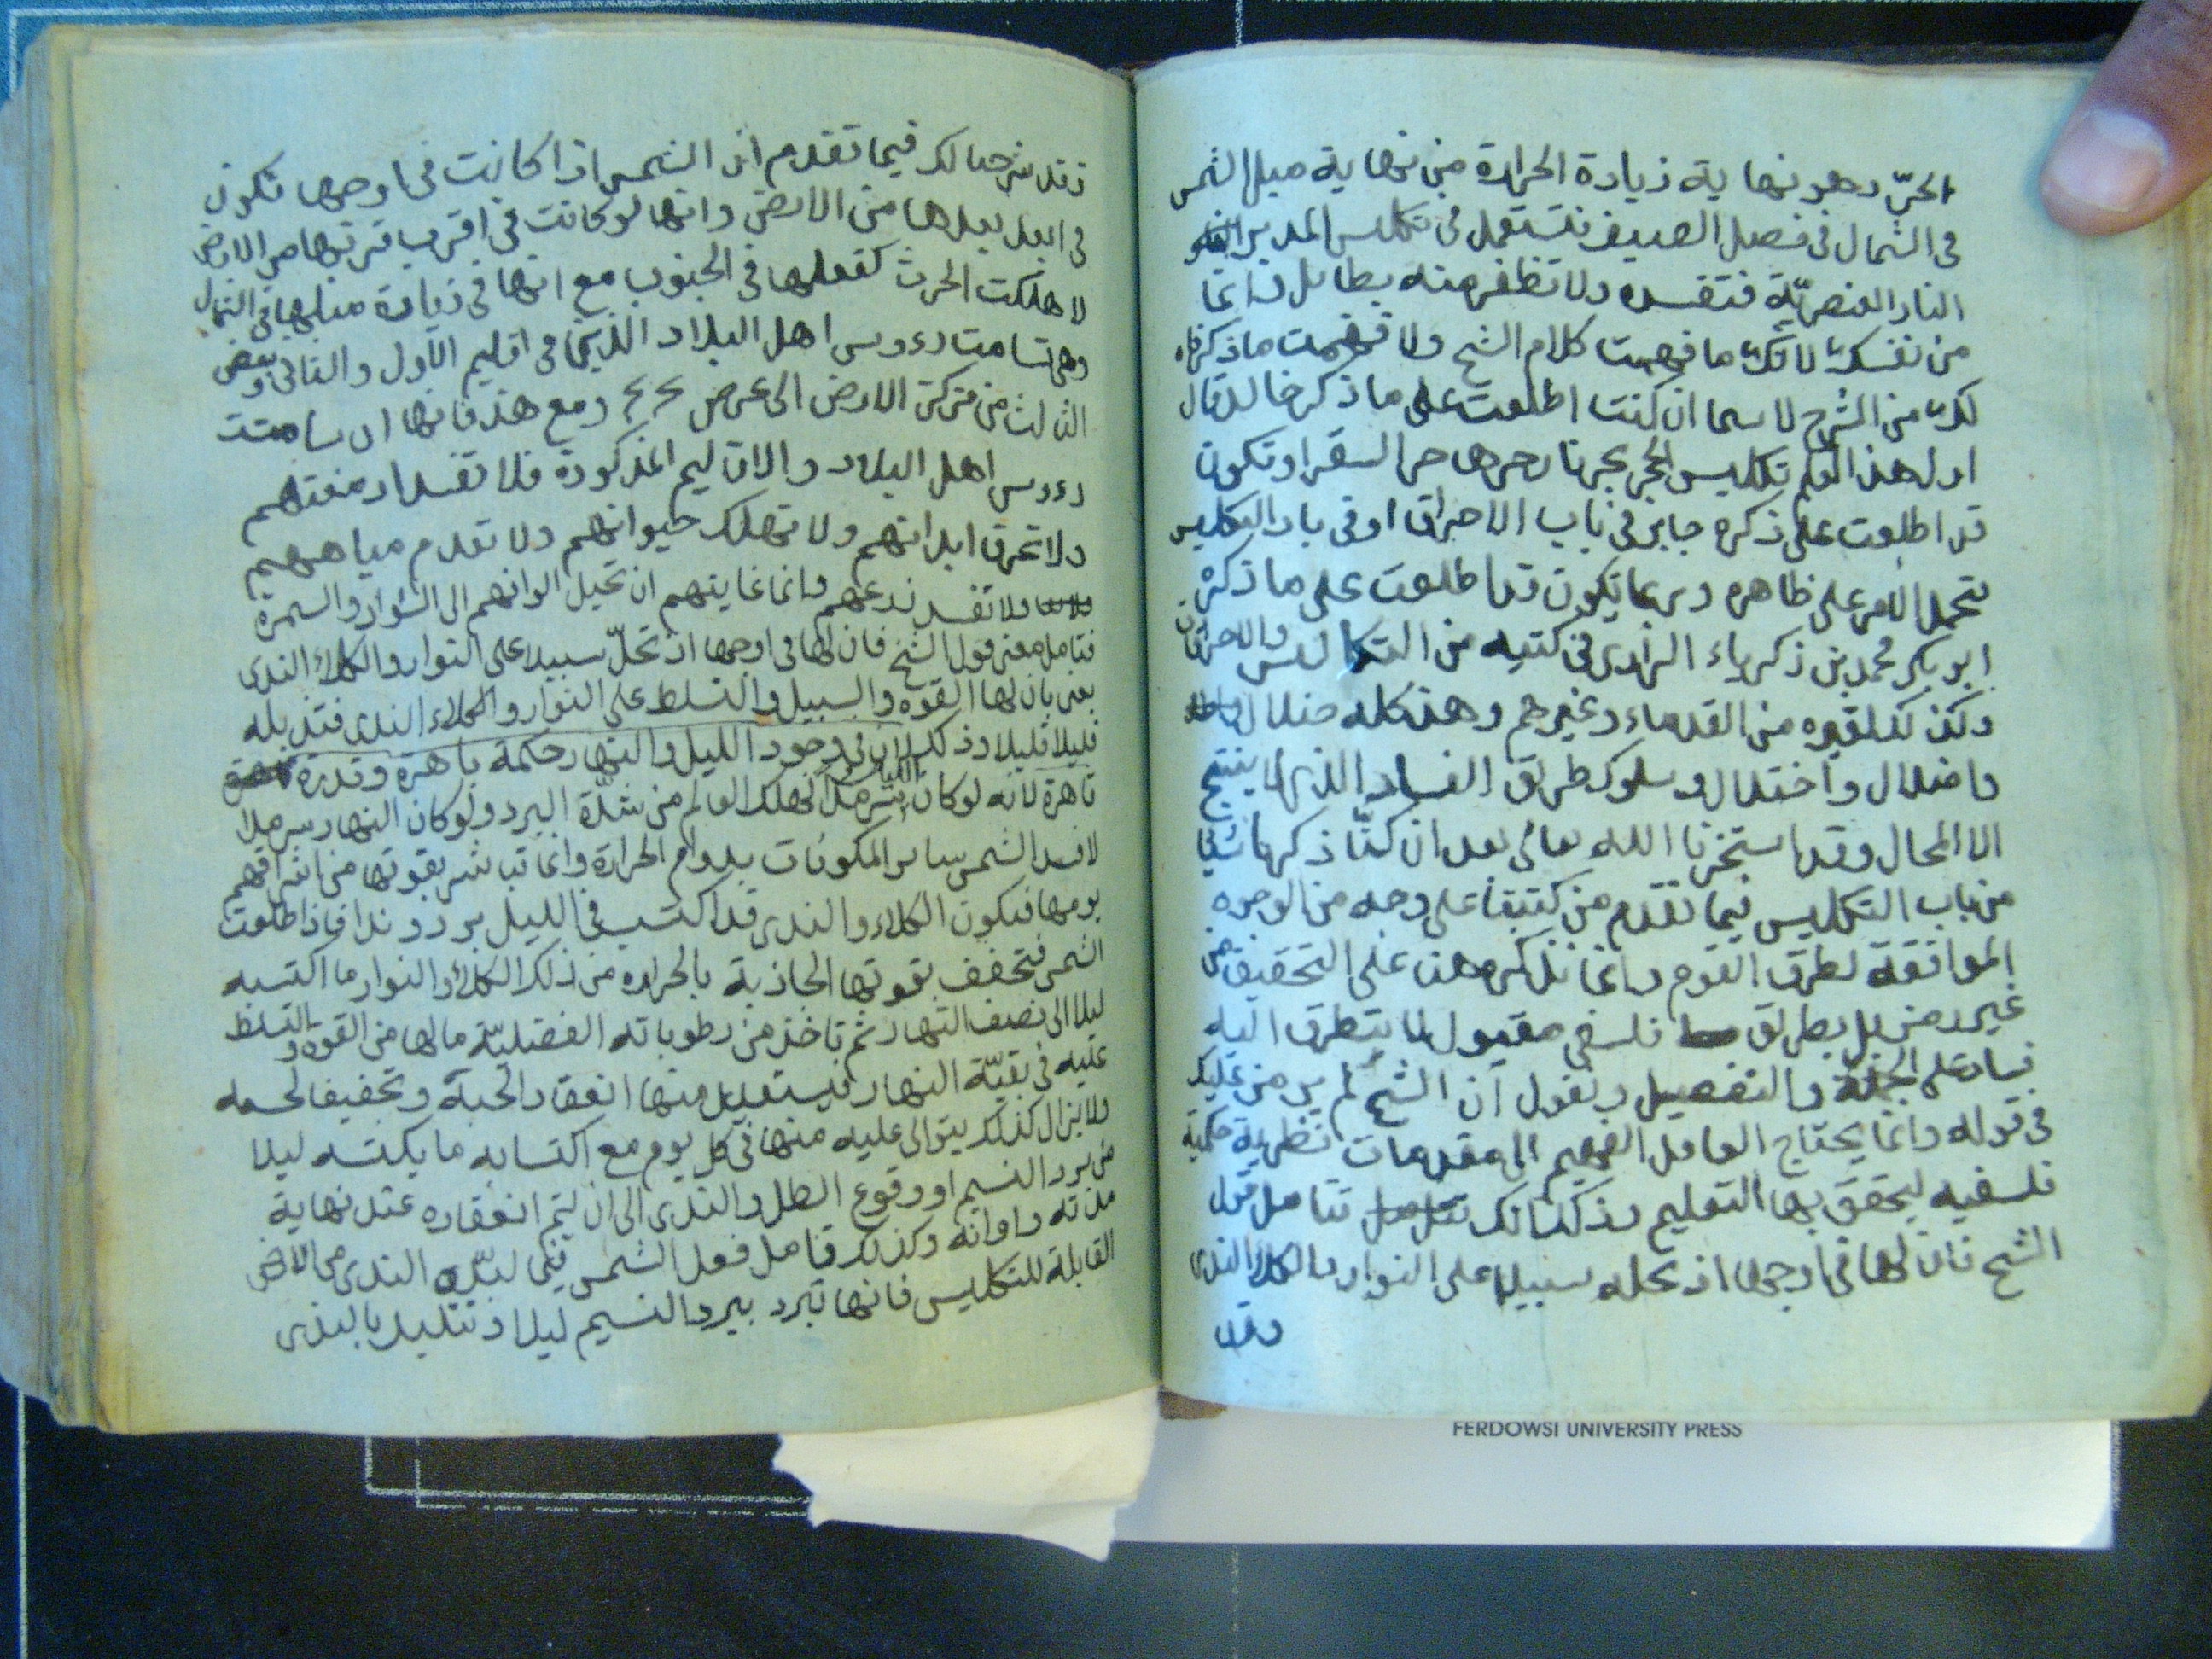 الحرّ وهو نهاية زيادة الحرارة من نهاية ميل الشمس
فى الشمال فى فصل الصيف فتستعمل فى تكليس المدبر
النار العنصريّة فتفسده ولا تظفر منه بطايل وانما
من نفسك لانك ما فهمت كلام الشيخ ولا فهمت ما ذكرناه
لك من الشرح لا سيما ان كنت اطلعت على ما ذكر خالد قال
اول هذا العلم تكليس الحجر بحرنار حرها حر السقر او تكون
قد اطلعت على ذكره جابر فى باب الاحراق او فى باب التكليس
تحمل الامر على ظاهره وربما تكون قد اطلعت على ما ذكره
ابو بكر محمد بن زكرياء الرازى فى كتبه من التكاليس والاحراق
وكذلك لقوه من القدماء وغيرهم وهذ كله ضلال
واضلال واختلال وسلوك طريق الفساد الذى لا ينتج
الا المحال وقد استخرنا الله تعالى بعد ان كنّا ذكرنا شيئا
من باب التكليس فيما تقدّم من كتبنا على وجه من الوجوه
الموافقة لطرق القوم وانما نذكره هنا على التحقيق من
غير رمز بل بطريق فلسفى مقبول لا يتطرق اليه
فساد على الجملة والتفصيل ونقول ان الشيخ لم يرمز عليك
فى قوله وانما يحتاج العامل الفهيم الى مقدمات نظرية حكمية
فلسفيه ليحقق بها التعليم وذكرنا لك تتامل قول
الشيخ فان لها فى اوجها اذ تحله سبيلا على النوار والكلاء الندى
وقد
وقد شرحنا لك فيما تقدم ان الشمس اذا كانت فى اوجها تكون
فى ابعد بعدها من الارض وانها لو كانت فى اقرب قربها من الارض
لاهلكت الحرث كفعلها فى الجنوب مع انها فى زيادة ميلها فى الشمال
وهى تسامت رءوس اهل البلاد الذين فى اقليم الاول والثانى وبعض
الثالث من مركز الارض الى عرض ومع هذ فانها ان سامتت
رءوس اهل البلاد والاقاليم المذكورة فلا تفسد ادمغتهم
ولا تحرق ابدانهم ولا تهلك حيوانهم ولا تعدم مياههم
ولا تفسد زرعهم وانما غايتهم ان تحيل الوانهم الى السواد والسمرة
فتامل معنى قول الشيخ فان لها فى اوجها اذ تحلّ سبيلا على النوار والكلاء الندى
يعنى بان لها القوه والسبيل والتسلط على النوار والكلاء الندى فتذبله
قليلا قليلا وذلك لان فى وجود الليل والنهار حكمة باهرة وقدرة
قاهرة لانه لو كان الليل سرمدا لهلك العالم من شدّة البرد ولو كان النهار سرمدا
لافسد الشمس ساير المكونات بدوام الحرارة وانما تباشر بقوتها من اشراقهم
يومها فيكون الكلاء والندى قد اكتسب فى الليل برد وندا فاذا طلعت
الشمس فتخفف بقوتها الجاذبة بالحراره من ذلك الكلاء والنوار ما اكتسبه
ليلا الى نصف النهار ثم تاخذ من رطوباته الفضليّة ما لها من القوه والتسلط
عليه فى بقيّة النهار فيستعمل منها انعقاد الحبة وتجفيفا لجسمه
ولا يزال كذلك يتوالى عليه منها فى كل يوم مع اكتسابه ما يكتسبه ليلا
من برد النسيم او وقوع الطل والندى الى ان يتم انعقاده عند نهاية
مدته واوانه وكذلك فتامل فعل الشمس الندى من الارض
القابلة للتكليس فانها تبرد ببرد النسيم ليلا وتتبلل بالندى
FERDOWSI UNIVERSITY PRESS